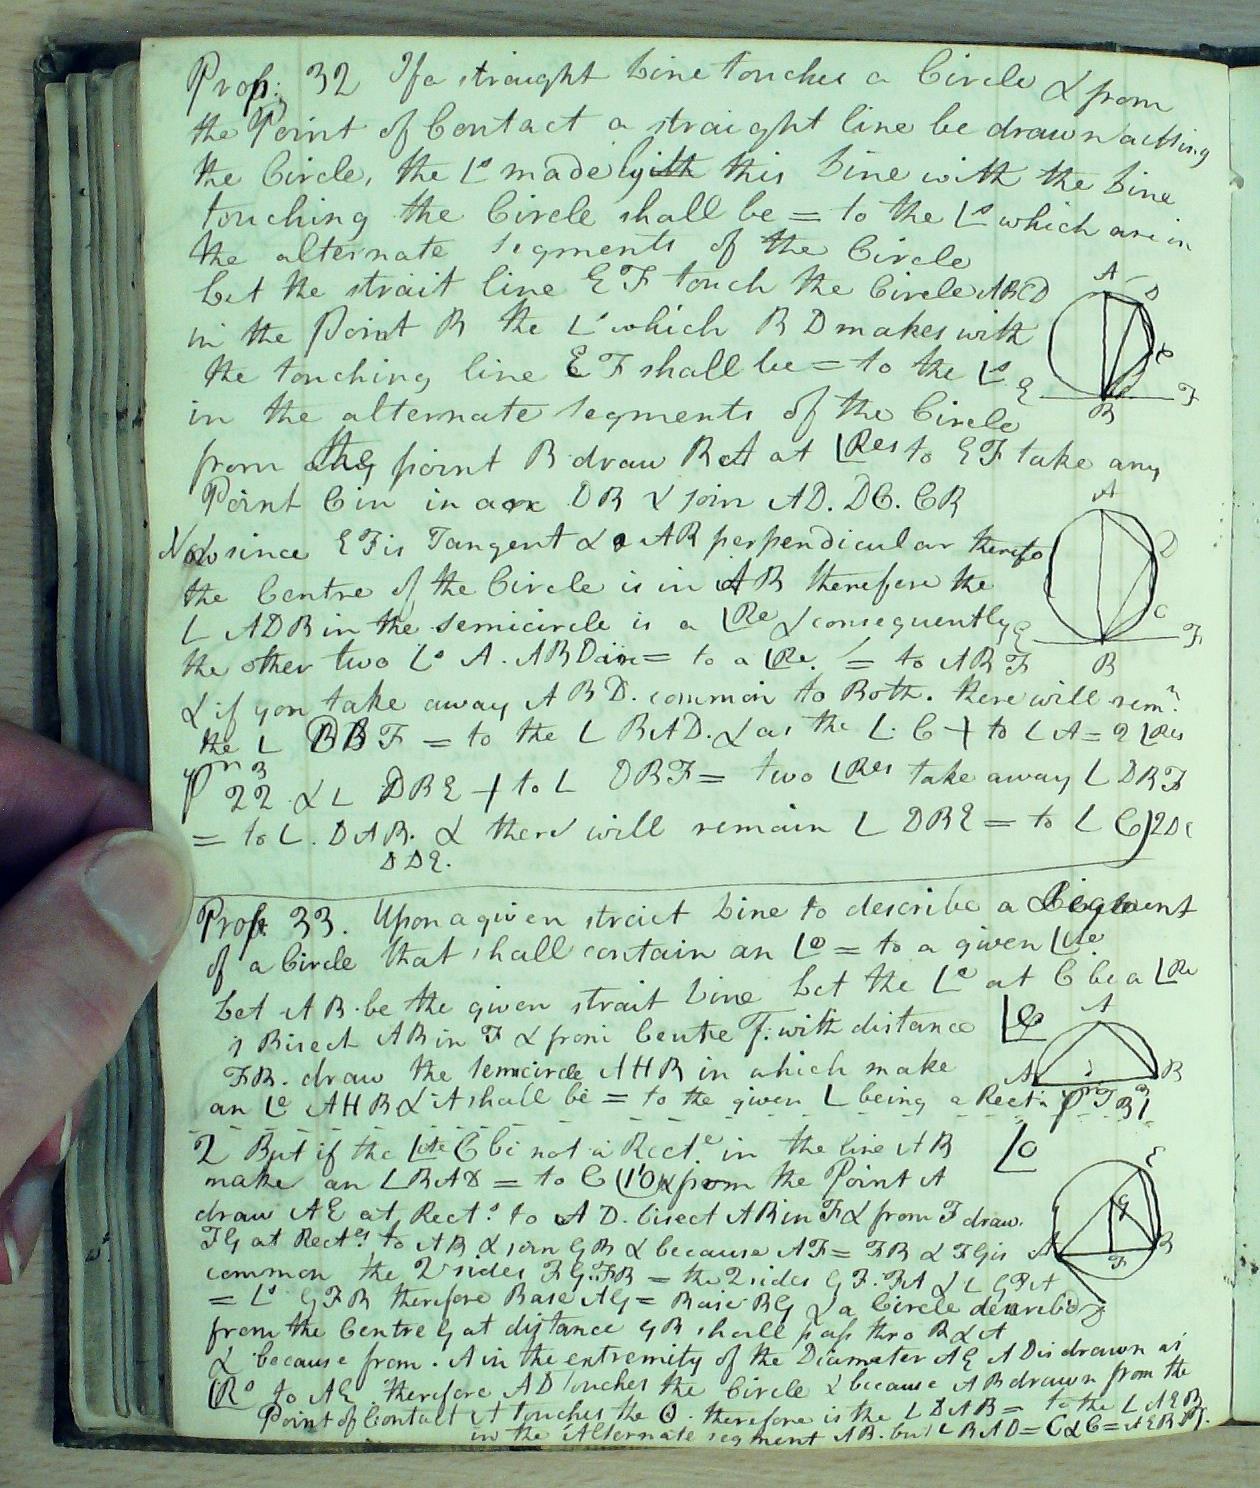 Prop. 32 If a straight Line touches a Circle & from
the Point of Contact a straight line be drawn cutting
the Circle, the ∠s made by this Line with the Line
touching the Circle shall be = to the ∠s which are in
the alternate segments of the Circle
Let the strait line EF touch the Circle ABCD
in the Point B the ∠s which BD makes with
the touching line EF shall be = to the ∠s
in the alternate segments of the Circle
from the point B draw BA at ∠Res to EF take any
Point C in in arc DB & join AD. DC. CB
Now since EF is Tangent & AB perpendicular thereto
the Centre of the Circle is in AB therefore the
∠ ADB in the semicircle is a ∠Re & consequently
the other two ∠s A. ABD = to a ∠Re. = to ABF
& if you take away ABD. common to Both. there will remn
the ∠ DBF = to the ∠ BAD. & as the ∠. C + to ∠ A = 2 ∠Res
Pn 22 3 & ∠ DBE + to ∠ DBF = two ∠Res take away ∠ DBF
= to ∠. DAB. & there will remain ∠ DBE = to ∠ C
Prop. 33. Upon a given strait Line to describe a Segment
of a Circle that shall contain an ∠e = to a given ∠le
Let AB. be the given strait Line Let the ∠e at C be a ∠Re
1 Bisect AB in F & from Centre F. with distance
FB. draw the semicircle AHB in which make
an ∠e AHB & it shall be = to the given ∠ being a Rect. Pn T 31 3
2 But if the ∠le C be not a Rect.e in the line AB
make an ∠ BAD = to C & from the Point A
draw AE at Rect.s to AD. bisect AB in F & from F draw.
FG at Rect.es to AB & join GB & because AF = FB & FG is
common the 2 sides FG. FB = the 2 sides GF. FA & ∠ GFA
= ∠s GFB therefore Base AG = Base BG & a Circle described
from the Centre G at distance GB shall pass thro B & A
& because from. A in the extremity of the Diameter AE AD is drawn at
∠Rs to AE therefore AD touches the Circle & because AB drawn from the
Point of Contact A touches the ⊙. therefore is the ∠ DAB = to the ∠ AEB
in the Alternate segment AB. but ∠ BAD = C & C = AEB